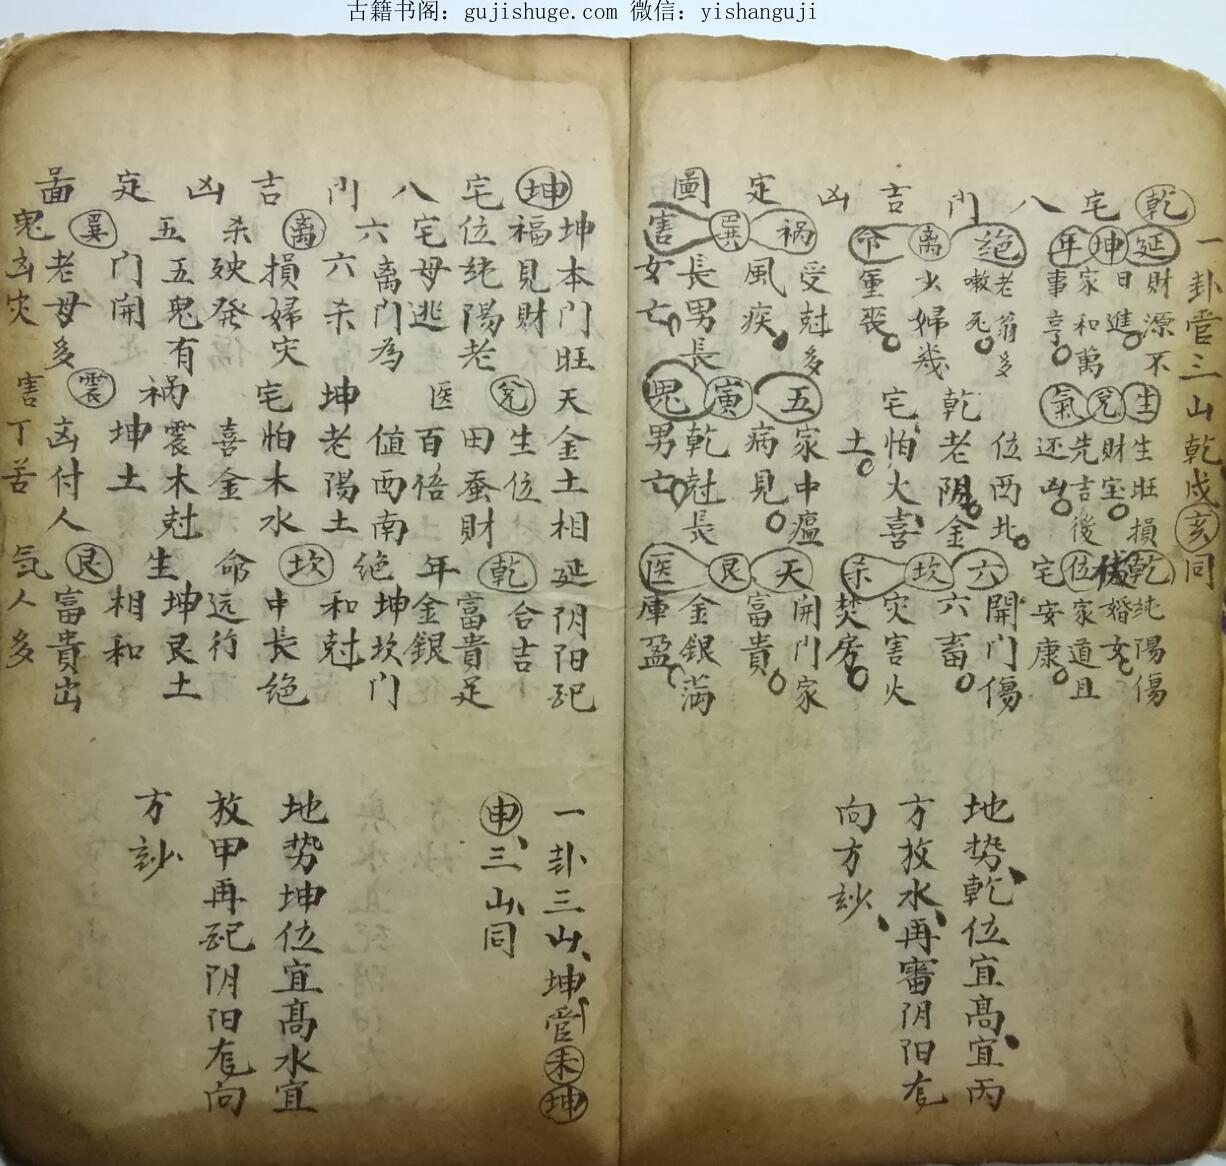 古籍书阁：gujishuge.com 微信：yishanguji
乾宅八门吉凶定圖
一卦管三山乾戌亥同
延坤年
財源不
日進
家和萬
事亨
絕離命
老翁多
嗽死
少婦幾
重喪
祸巽害
受尅多
風疾
長男長
女亡
生兌氣
生旺損
財宝
先吉後
还凶
乾
位西北
老阴金
宅怕火喜
土
五寅鬼
家中瘟
病見
乾尅長
男亡
乾位宅
純陽傷
婚女
家道且
安康
六坎杀
開門傷
六畜
灾害火
焚房
天艮医
開門家
富貴
金銀满
庫盈
地势乾位宜高宜丙
方放水再審阴阳
向方訬
坤宅八门吉凶定啚
坤本门旺
福見財
位純陽老
宅母逃
六離杀
離门為
六杀
損婦灾
殃發
五巽鬼
五鬼有
门開
老母多
凶灾
天兌医
金土相
生位
田蚕財
百倍
坤宅
値西南
老陽土
怕木水
喜金
祸震害
震木尅
坤土
凶付人
丁苦
延乾年
阴阳配
合吉
富貴足
金銀
絶坎命
坤坎门
和尅
中長絶
远行
生艮気
坤艮土
相和
富貴出
人多
一卦三山坤管未坤
申三山同
地势坤位宜高水宜
放甲再配阴阳向
方訬